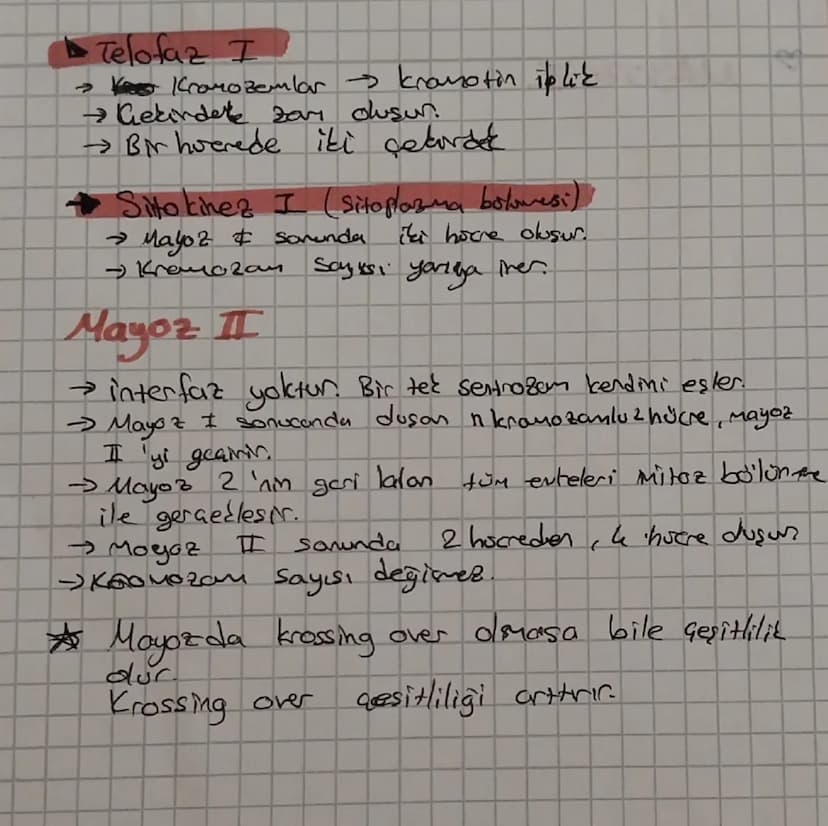 Telofaz I
→ Kromozomlar → kromotin iplik
→ Çekirdek zarı oluşur.
→ Bir hücrede iki çekirdek
→ Sitokinez I (sitoplazma bölünmesi)
→ Mayoz I sonunda iki hücre oluşur.
→ Kromozom sayısı yarıya iner.
Mayoz II
→ interfaz yoktur. Bir tek sentrozom kendini eşler.
→ Mayoz I sonucunda oluşan n kromozomlu 2 hücre, mayoz
II 'yi geçirir.
→ Mayoz 2 'nin geri kalan tüm evreleri mitoz bölünme
ile gerçekleşir.
→ Mayoz II sonunda 2 hücreden, 4 hücre oluşur
→ Kromozom sayısı değişmez.
☆ Mayozda krossing over olmasa bile çeşitlilik
olur.
Krossing over çeşitliliği arttırır.